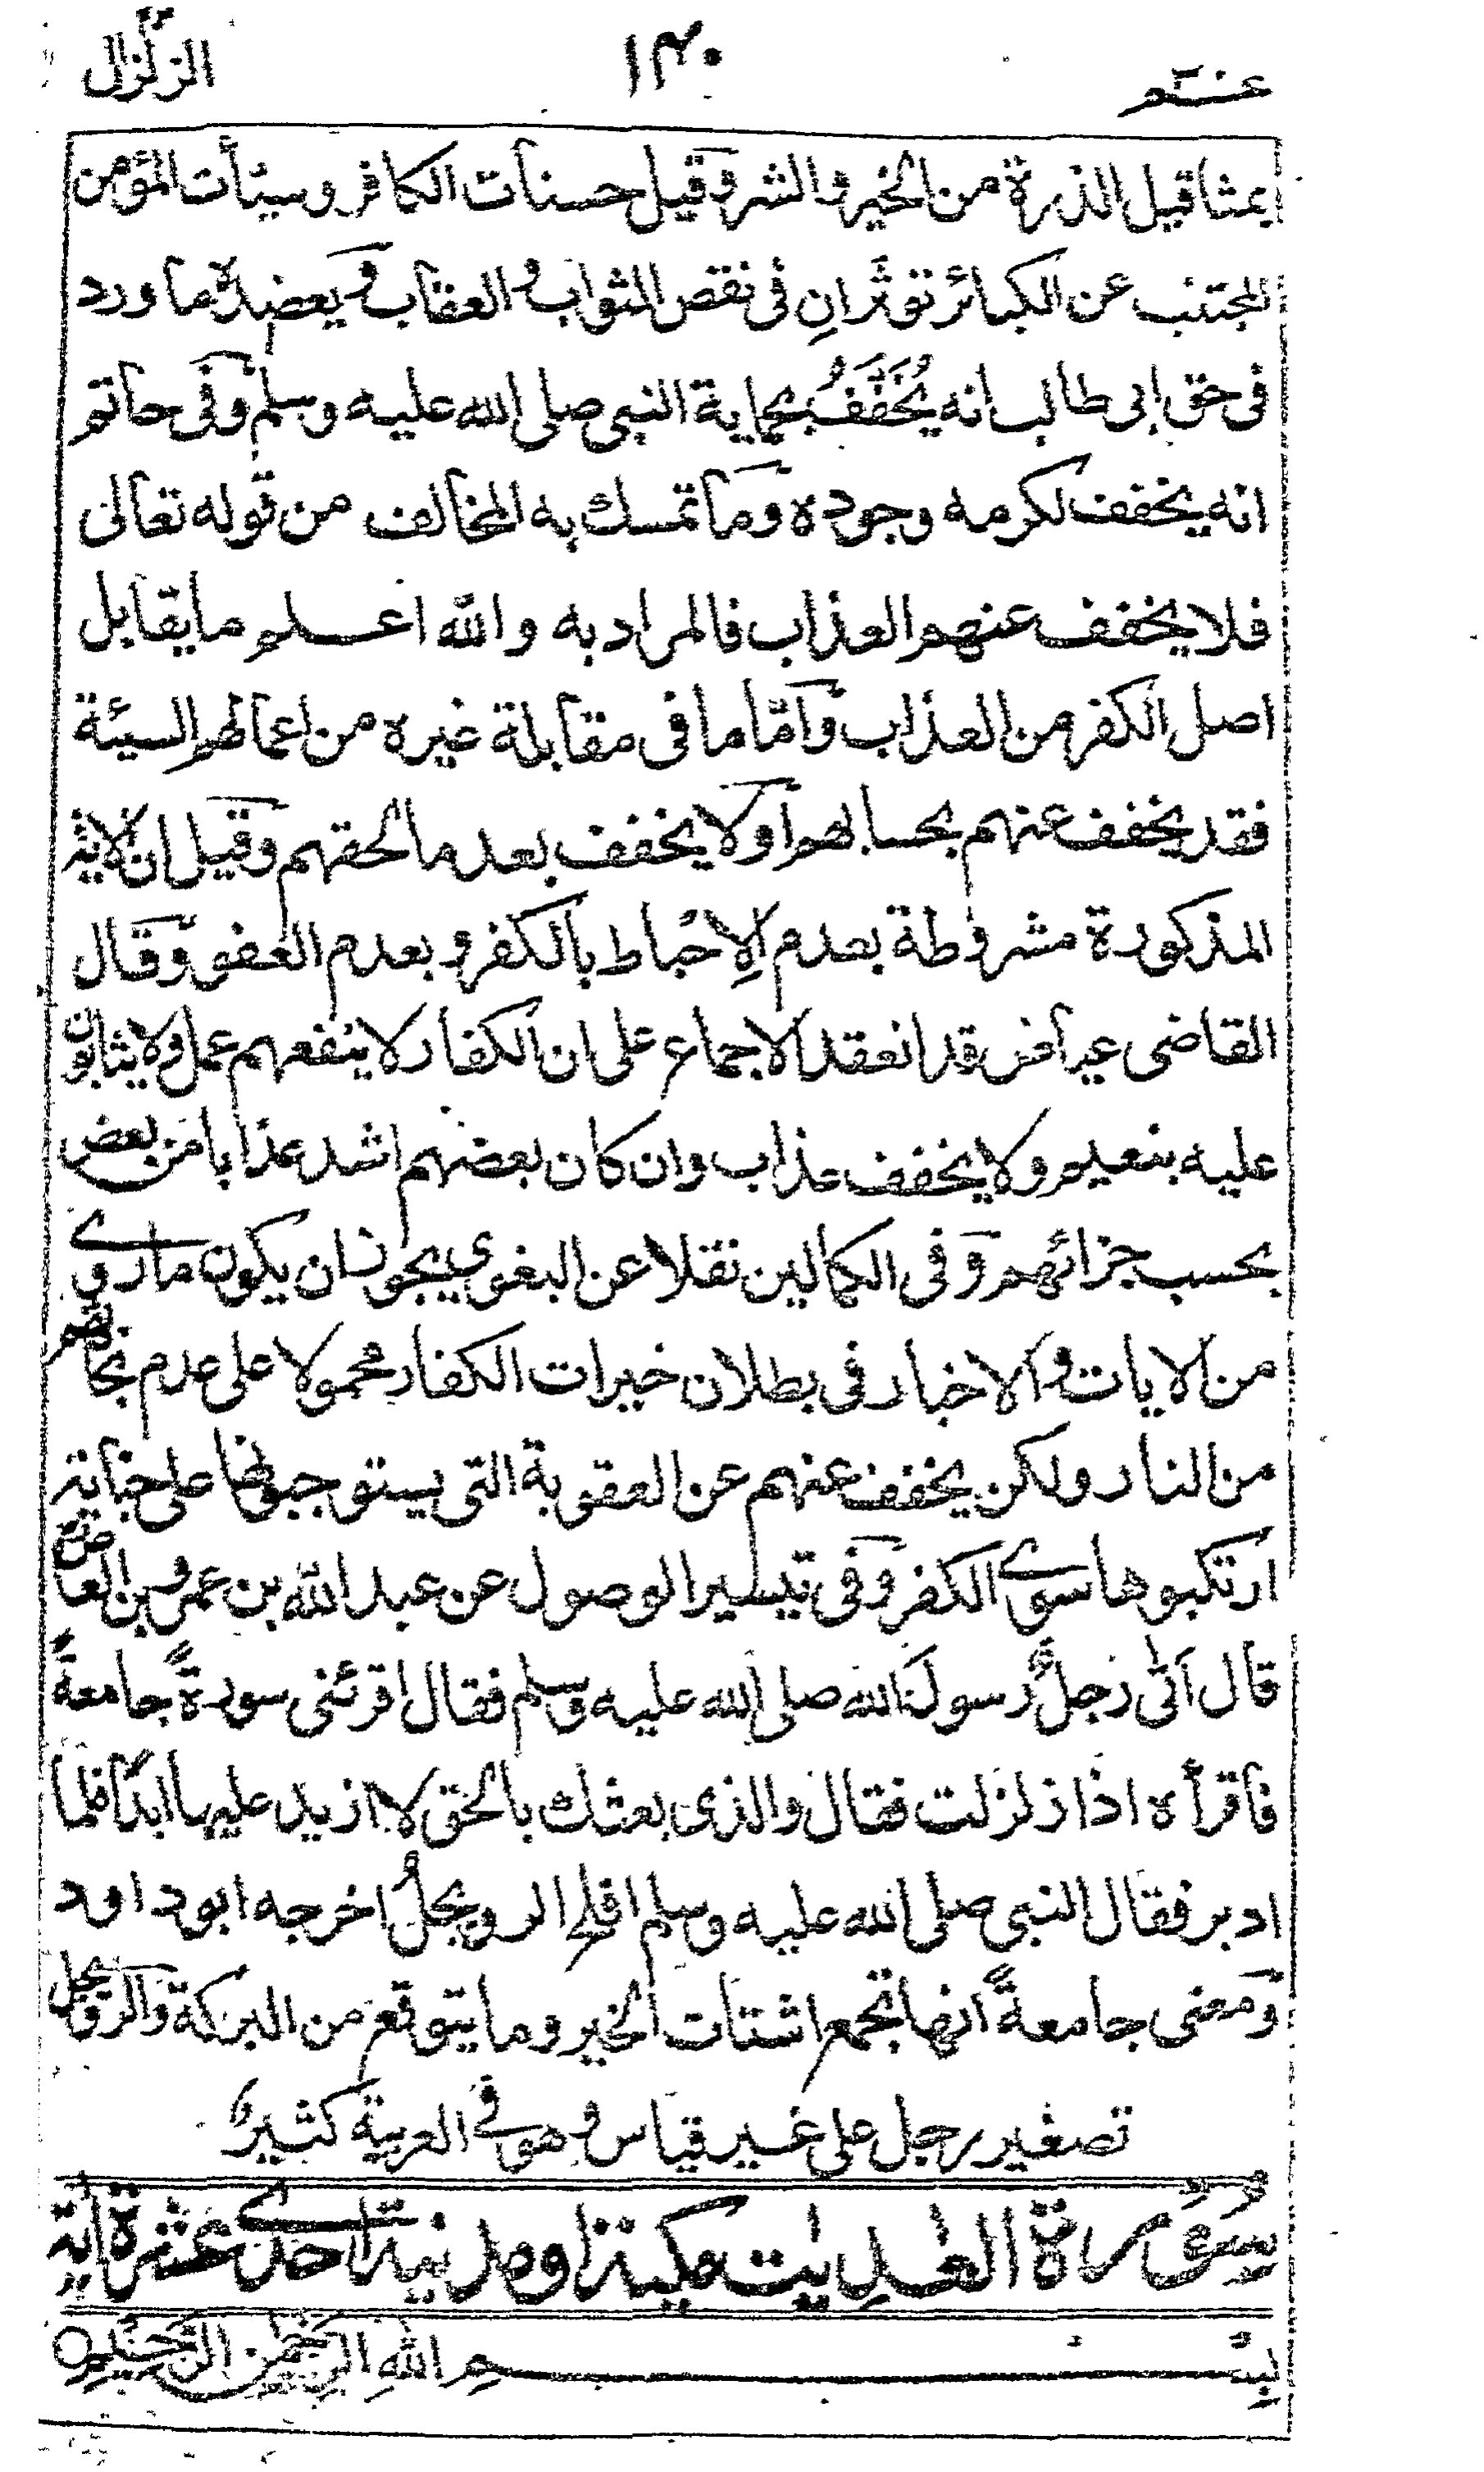 عـــم ١٤٠ الزلزال
بمثاقيل الذرة من الخير والشر وقيل حسنات الكافر وسيئات المؤمن
المجتنب عن الكبائر تؤثران في نقص الثواب والعقاب ويعضده ما ورد
في حق ابى طالب انه يُخَفَّفُ بحماية النبي صلى الله عليه وسلم وفي حاتم
انه يخفف لكرمه وجوده وما تمسك به المخالف من قوله تعالى
فلا يخفف عنهم العذاب فالمراد به والله اعلم ما يقابل
اصل الكفر من العذاب وأمّا ما في مقابلة غيره من اعمالهم السيئة
فقد يخفف عنهم بحسابهم اولا يخفف بعد ما لحقهم وقيل ان الاية
المذكورة مشروطة بعدم الإحباط بالكفر وبعدم العفو وقال
القاضى عياض قد انعقد الاجماع على ان الكفار لا ينفعهم عمل ولا يثابون
عليه بنعيم ولا يخفف عذاب وان كان بعضهم اشد عذابا من بعض
بحسب جرائهم وفي الكمالين نقلا عن البغوي يجوز ان يكون ما روي
من الايات والاخبار في بطلان خيرات الكفار محمولا على عدم نجاتهم
من النار ولكن يخفف عنهم عن العقوبة التى يستوجبونها على جناية
ارتكبوها سوى الكفر وفي تيسير الوصول عن عبد الله بن عمرو بن العاص
قال أتى رجلٌ رسولَ الله صلى الله عليه وسلم فقال اقرئنى سورةً جامعةً
فأقرأه اذا زلزلت فقال والذى بعثك بالحق لا ازيد عليها ابدًا فلما
ادبر فقال النبي صلى الله عليه وسلم افلح الرويجلُ اخرجه ابوداود
ومعنى جامعةً انها تجمع اشتات الخير وما يتوقع من البركة والرويجل
تصغير رجل على غير قياس وهو في العربية كثيرٌ
سورة العديت مكية او مدنية احدى عشرة اية
بِسْــــمِ اللهِ الرَّحْمٰنِ الرَّحِيْمِ